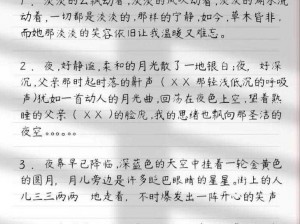 1、淡淡的云飘动着,淡淡的风吹动着,淡淡的湖水流
动着,一切都是淡淡的,那样的宁静,如今,草木皆非,
而她那淡淡的笑容依旧让我温暖又难忘。
2、夜,好静谧,柔和的月光散了一地银白;夜,好深
沉,父亲那时起时落的鼾声(××那轻浅低沉的呼吸
声)犹如一首动人的月光曲,回荡在夜色上空,望着熟
睡的父亲(××)的脸庞,我的思绪也飘向那圣洁的
夜空。。。。。。
3、夜幕早已降临,深蓝色的天空中挂着一轮金黄色
的圆月,月儿旁边是许多眨巴眼睛的星星。街上的人
儿三三两两 地走着,不时爆发出一阵开心的笑声